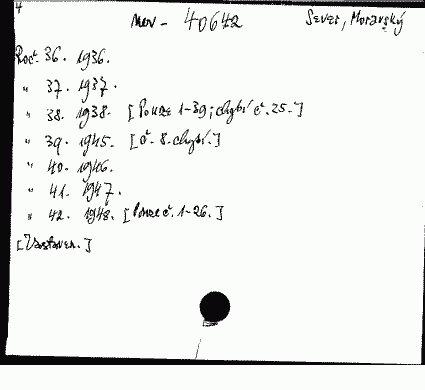 4
Mor - 40642 Sever, Moravský
Roč. 36. 1936.
" 37. 1937.
" 38. 1938. [Pouze 1-39; chybí č. 25.]
" 39. 1945. [č. 8. chybí.]
" 40. 1946.
" 41. 1947.
" 42. 1948. [Pouze č. 1-26.]
[Zastaven.]